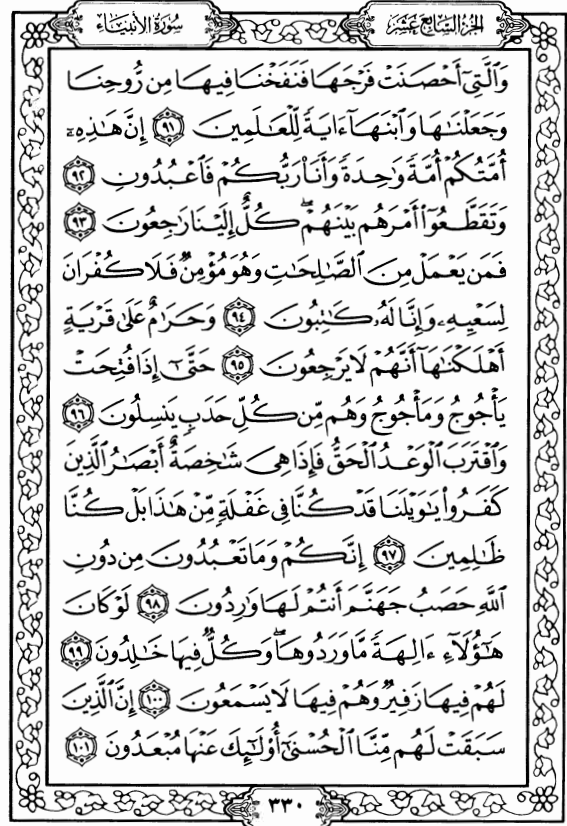 سُورَةُ الأَنبِيَاءِ
الجُزْءُ السَّابِعَ عَشَرَ
وَٱلَّتِىٓ أَحْصَنَتْ فَرْجَهَا فَنَفَخْنَا فِيهَا مِن رُّوحِنَا
وَجَعَلْنَٰهَا وَٱبْنَهَآ ءَايَةً لِّلْعَٰلَمِينَ ٩١ إِنَّ هَٰذِهِۦٓ
أُمَّتُكُمْ أُمَّةً وَٰحِدَةً وَأَنَا۠ رَبُّكُمْ فَٱعْبُدُونِ ٩٢
وَتَقَطَّعُوٓا۟ أَمْرَهُم بَيْنَهُمْ ۖ كُلٌّ إِلَيْنَا رَٰجِعُونَ ٩٣
فَمَن يَعْمَلْ مِنَ ٱلصَّٰلِحَٰتِ وَهُوَ مُؤْمِنٌ فَلَا كُفْرَانَ
لِسَعْيِهِۦ وَإِنَّا لَهُۥ كَٰتِبُونَ ٩٤ وَحَرَٰمٌ عَلَىٰ قَرْيَةٍ
أَهْلَكْنَٰهَآ أَنَّهُمْ لَا يَرْجِعُونَ ٩٥ حَتَّىٰٓ إِذَا فُتِحَتْ
يَأْجُوجُ وَمَأْجُوجُ وَهُم مِّن كُلِّ حَدَبٍ يَنسِلُونَ ٩٦
وَٱقْتَرَبَ ٱلْوَعْدُ ٱلْحَقُّ فَإِذَا هِىَ شَٰخِصَةٌ أَبْصَٰرُ ٱلَّذِينَ
كَفَرُوا۟ يَٰوَيْلَنَا قَدْ كُنَّا فِى غَفْلَةٍ مِّنْ هَٰذَا بَلْ كُنَّا
ظَٰلِمِينَ ٩٧ إِنَّكُمْ وَمَا تَعْبُدُونَ مِن دُونِ
ٱللَّهِ حَصَبُ جَهَنَّمَ أَنتُمْ لَهَا وَٰرِدُونَ ٩٨ لَوْ كَانَ
هَٰٓؤُلَآءِ ءَالِهَةً مَّا وَرَدُوهَا ۖ وَكُلٌّ فِيهَا خَٰلِدُونَ ٩٩
لَهُمْ فِيهَا زَفِيرٌ وَهُمْ فِيهَا لَا يَسْمَعُونَ ١٠٠ إِنَّ ٱلَّذِينَ
سَبَقَتْ لَهُم مِّنَّا ٱلْحُسْنَىٰٓ أُو۟لَٰٓئِكَ عَنْهَا مُبْعَدُونَ ١٠١
٣٣٠